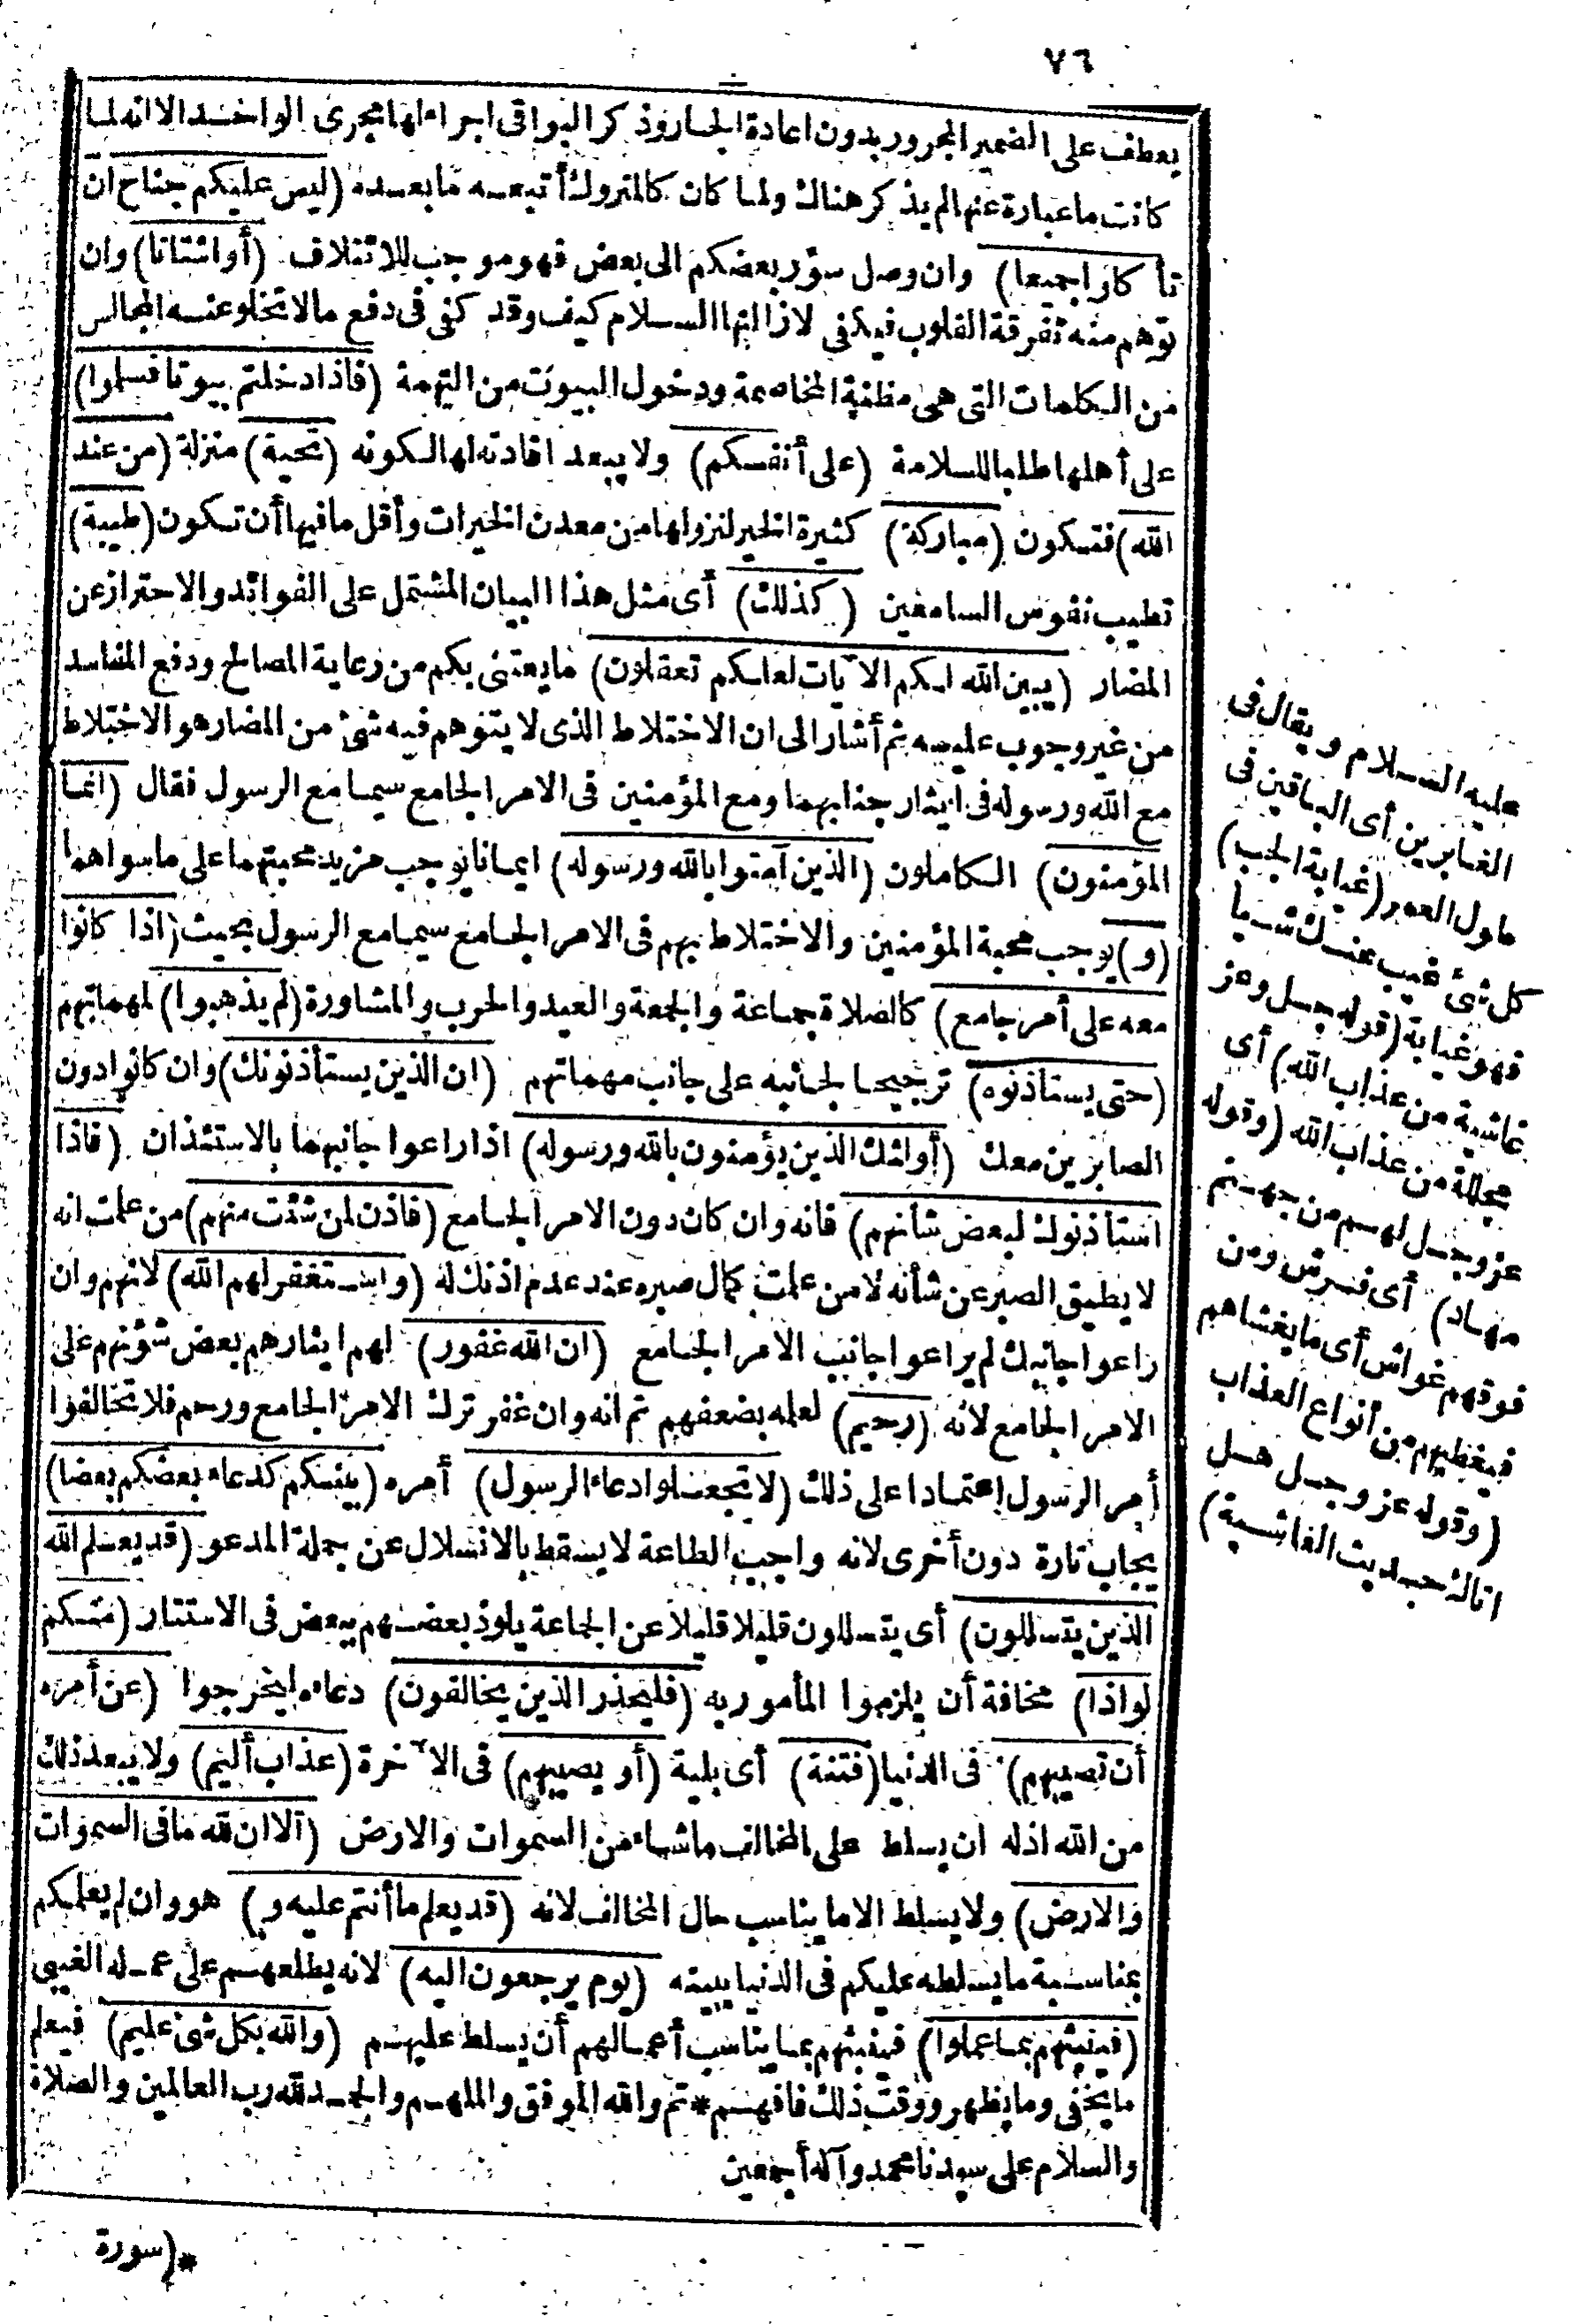 ٧٦
يعطف على الضمير المجرور بدون اعادة الجار وذكر البواقى اجراء لها مجرى الواحد الا انه لما
كانت ما عبارة عنها لم يذكر هناك ولما كان كالمتروك أتبعه ما بعده (ليس عليكم جناح ان
تأكلوا جميعا) وان وصل سؤر بعضكم الى بعض فهو موجب للائتلاف (أو اشتاتا) وان
توهم منه تفرقة القلوب فيكفى لازالتها السلام كيف وقد كفى فى دفع ما لا تخلو عنه المجالس
من الكلمات التى هى مظنة المخاصمة ودخول البيوت من التهمة (فاذا دخلتم بيوتا فسلموا)
على أهلها طلبا للسلامة (على أنفسكم) ولا يبعد افادته لها لكونه (تحية) منزلة (من عند
الله) فتكون (مباركة) كثيرة الخير لنزولها من معدن الخيرات وأقل ما فيها أن تكون (طيبة)
تطيب نفوس السامعين (كذلك) أى مثل هذا البيان المشتمل على الفوائد والاحتراز عن
المضار (يبين الله لكم الآيات لعلكم تعقلون) ما يعتنى بكم من رعاية المصالح ودفع المفاسد
من غير وجوب عليه ثم أشار الى ان الاختلاط الذى لا يتوهم فيه شئ من المضار هو الاختلاط
مع الله ورسوله فى ايثار جنابهما ومع المؤمنين فى الامر الجامع سيما مع الرسول فقال (انما
المؤمنون) الكاملون (الذين آمنوا بالله ورسوله) ايمانا يوجب مزيد محبتهما على ما سواهما
(و) يوجب محبة المؤمنين والاختلاط بهم فى الامر الجامع سيما مع الرسول بحيث (اذا كانوا
معه على أمر جامع) كالصلاة بجماعة والجمعة والعيد والحرب والمشاورة (لم يذهبوا) لمهماتهم
(حتى يستأذنوه) ترجيحا لجانبه على جانب مهماتهم (ان الذين يستأذنونك) وان كانوا دون
الصابرين معك (أولئك الذين يؤمنون بالله ورسوله) اذا راعوا جانبهما بالاستئذان (فاذا
استأذنوك لبعض شأنهم) فانه وان كان دون الامر الجامع (فأذن لمن شئت منهم) من علمت انه
لا يطيق الصبر عن شأنه لا من علمت كمال صبره عند عدم اذنك له (واستغفر لهم الله) لانهم وان
راعوا جانبك لم يراعوا جانب الامر الجامع (ان الله غفور) لهم ايثارهم بعض شؤنهم على
الامر الجامع لانه (رحيم) لعلمه بضعفهم ثم انه وان غفر ترك الامر الجامع ورحم فلا تخالفوا
أمر الرسول اعتمادا على ذلك (لا تجعلوا دعاء الرسول) أمره (بينكم كدعاء بعضكم بعضا)
يجاب تارة دون أخرى لانه واجب الطاعة لا يسقط بالانسلال عن جملة المدعو (قد يعلم الله
الذين يتسللون) أى يتسللون قليلا قليلا عن الجماعة يلوذ بعضهم ببعض فى الاستتار (منكم
لواذا) مخافة أن يلزموا المأمور به (فليحذر الذين يخالفون) دعاءه ليخرجوا (عن أمره
أن تصيبهم) فى الدنيا (فتنة) أى بلية (أو يصيبهم) فى الآخرة (عذاب أليم) ولا يبعد ذلك
من الله اذ له ان يسلط على المخالف ما شاء من السموات والارض (ألا ان لله ما فى السموات
والارض) ولا يسلط الا ما يناسب حال المخالف لانه (قد يعلم ما أنتم عليه و) هو وان لم يعلمكم
بمناسبة ما يسلطه عليكم فى الدنيا يبينه (يوم يرجعون اليه) لانه يطلعهم على عمله الغيبى
(فينبئهم بما عملوا) فينبئهم بما يناسب أعمالهم أن يسلط عليهم (والله بكل شئ عليم) فيعلم
ما يخفى وما يظهر ووقت ذلك فافهم * تم والله الموفق والملهم والحمد لله رب العالمين والصلاة
والسلام على سيدنا محمد وآله أجمعين
عليه السلام ويقال فى
الغابرين أى الباقين فى
طول العمر (غيابة الجب)
كل شئ غيب عنك شيأ
فهو غيابة (قوله جل وعز
غاشية من عذاب الله) أى
مجللة من عذاب الله (وقوله
عز وجل لهم من جهنم
مهاد) أى فرش ومن
فوقهم غواش أى ما يغشاهم
فيغطيهم من أنواع العذاب
(وقوله عز وجل هل
اتاك حديث الغاشية)
*(سورة